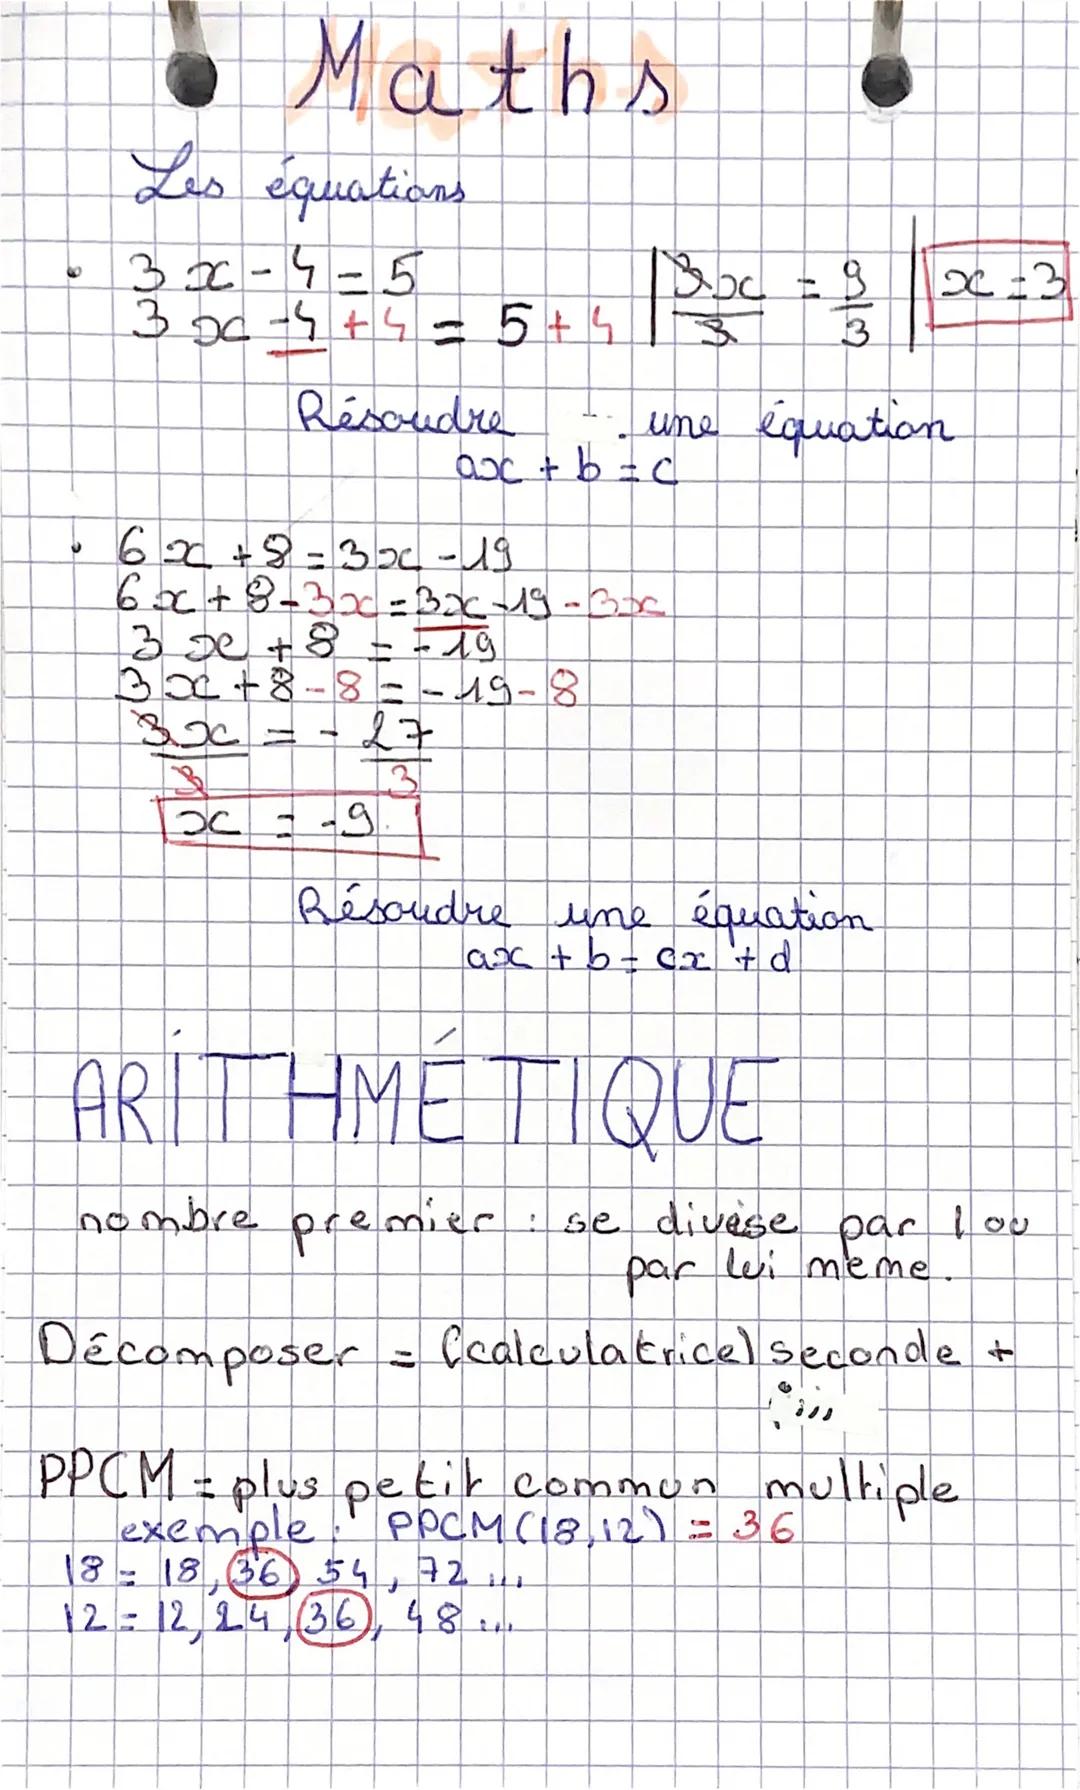 Maths
Les équations
• 3x - 4 = 5
3x - 4 + 4 = 5 + 4 | 3x/3 = 9/3 | x = 3
Résoudre une équation
ax + b = c
• 6x + 8 = 3x - 19
6x + 8 - 3x = 3x - 19 - 3x
3x + 8 = - 19
3x + 8 - 8 = - 19 - 8
3x/3 = - 27/3
x = - 9
Résoudre une équation
ax + b = cx + d
ARITHMÉTIQUE
nombre premier : se divise par 1 ou
par lui meme.
Décomposer = (calculatrice) seconde +
PPCM = plus petit commun multiple
exemple : PPCM (18,12) = 36
18 = 18, 36, 54, 72 ...
12 = 12, 24, 36, 48 ...